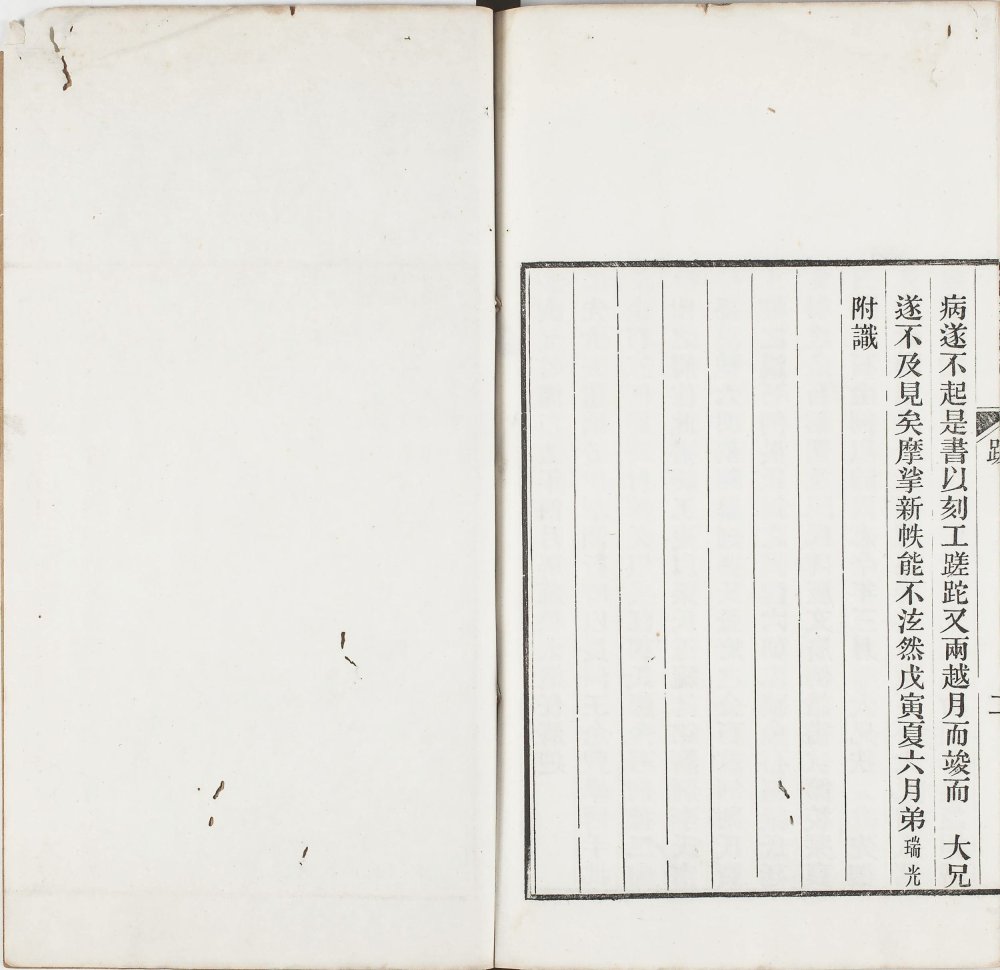 病遂不起是書以刻工蹉跎又兩越月而竣而　大兄
遂不及見矣摩挲新帙能不泫然戊寅夏六月弟瑞光
附識